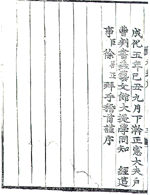 成化五年己丑九月下澣正憲大夫戶
曹判書兼藝文館大提學同知 經筵
事臣徐居正拜手稽首謹序